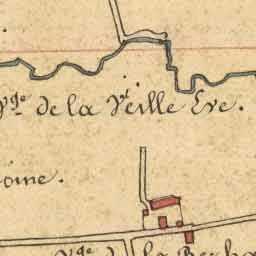 V.ge de la Vieille Eve.
oine.
V.ge de la